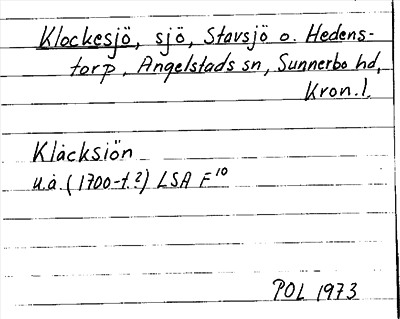 Klockesjö, sjö, Stavsjö o. Hedens-
torp, Angelstads sn, Sunnerbo hd,
Kron.l.
Klåcksiön
u.å. (1700-t.?) LSA F10
POL 1973